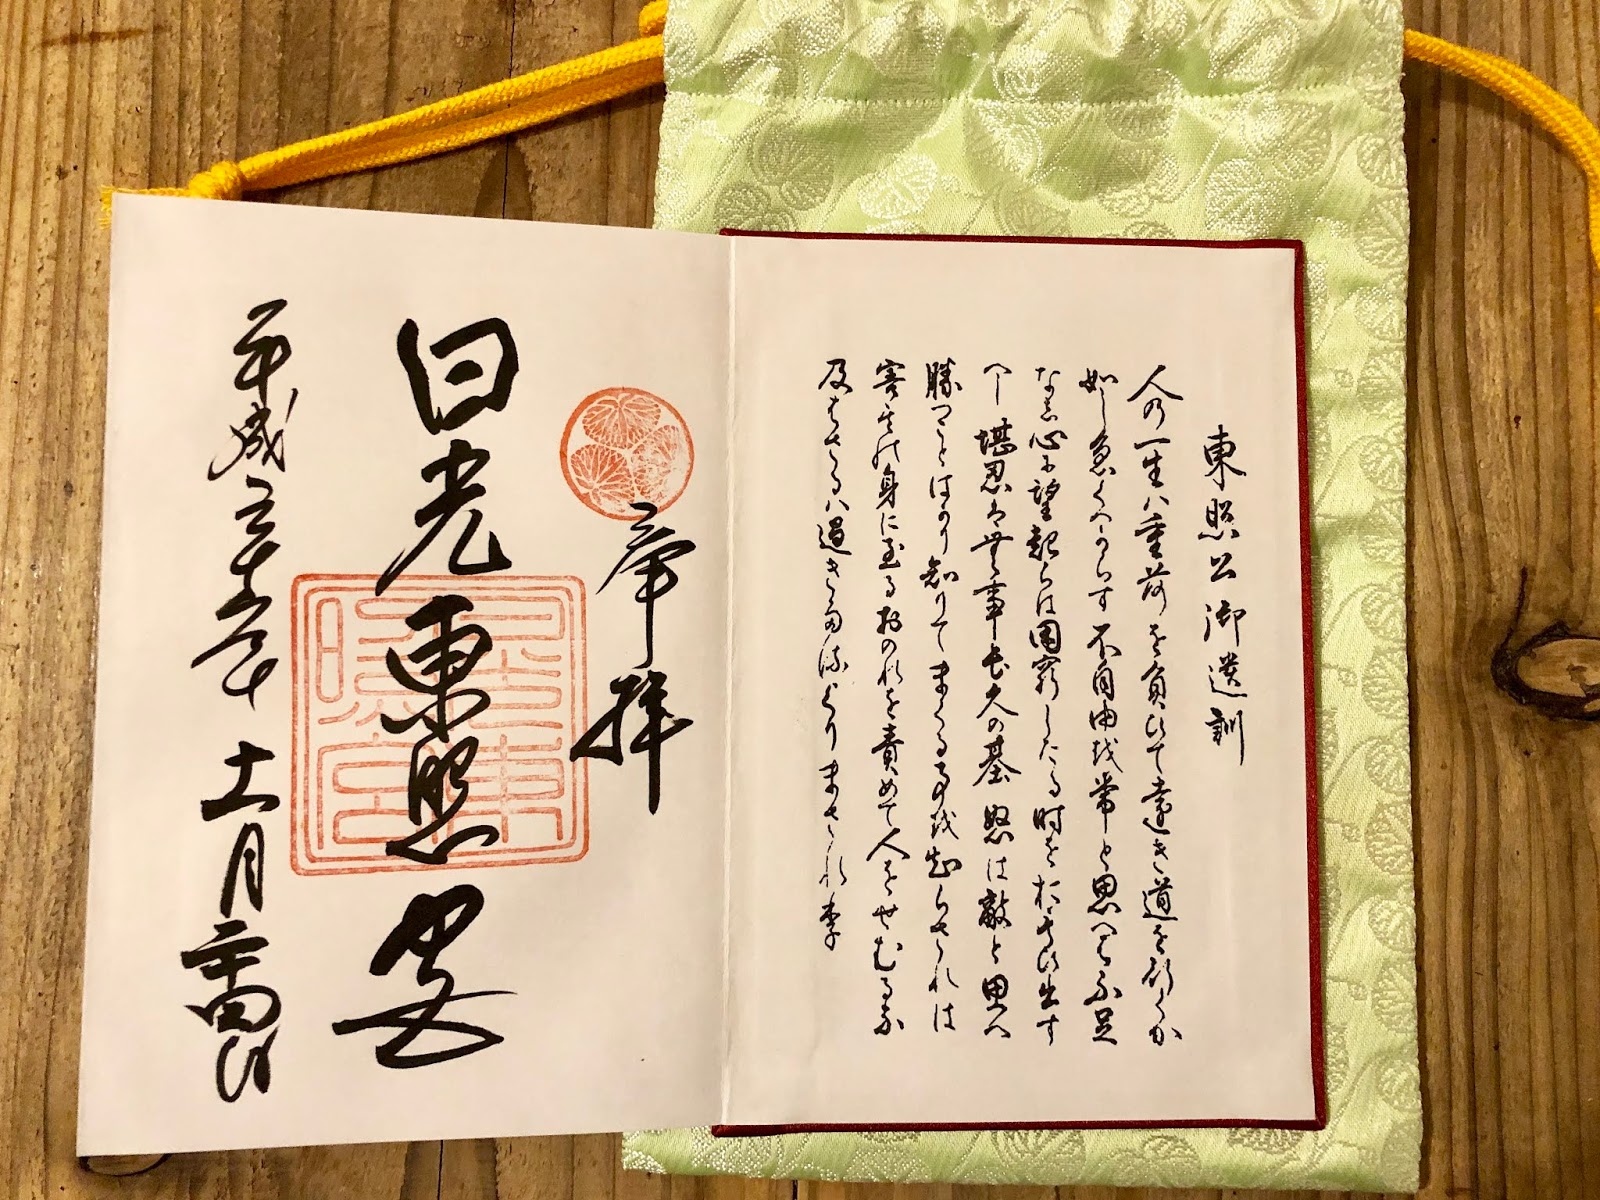 東照公御遺訓
人の一生ハ重荷を負ひて遠き道を行くか
如し急くへからす不自由を常と思へは不足
なし心に望起らは困窮したる時を思ひ出す
へし堪忍は無事長久の基怒は敵と思へ
勝つことはかり知りてまくる事を知らされは
害其の身に至るおのれを責めて人をせむるな
及はさるハ過きたるよりまされり
奉拝
日光東照宮
平成三十年十一月二十四日